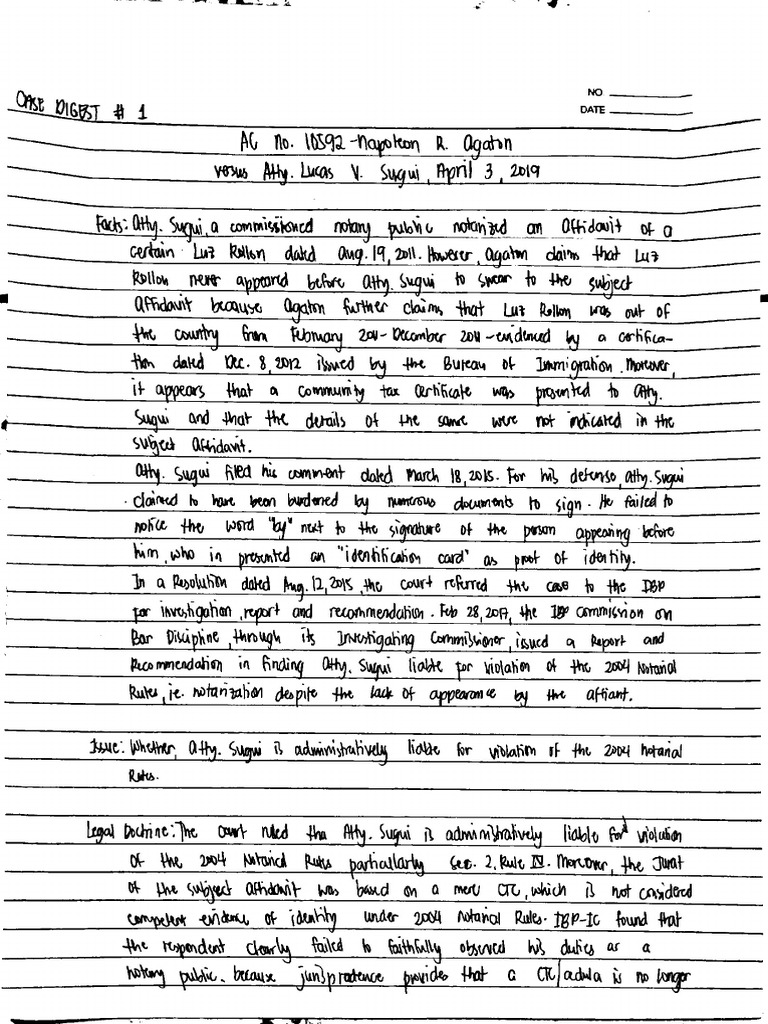 NO
DATE
CASE DIGEST # 1
AC No. 10592 - Napoleon R. Agaton
versus Atty. Lucas V. Sugui, April 3, 2019
Facts: Atty. Sugui, a commissioned notary public notarized an Affidavit of a
certain Luz Rollon dated Aug. 19, 2011. However, Agaton claims that Luz
Rollon never appeared before Atty. Sugui to swear to the subject
Affidavit because Agaton further claims that Luz Rollon was out of
the country from February 2011 - December 2011 - evidenced by a certifica-
tion dated Dec. 8, 2012 issued by the Bureau of Immigration. Moreover,
it appears that a community tax certificate was presented to Atty.
Sugui and that the details of the same were not indicated in the
subject Affidavit.
Atty. Sugui filed his comment dated March 18, 2015. For his defense, Atty. Sugui
claimed to have been burdened by numerous documents to sign. He failed to
notice the word "by" next to the signature of the person appearing before
him, who in presented an "identification card" as proof of identity.
In a Resolution dated Aug. 12, 2015, the court referred the case to the IBP
for investigation, report and recommendation. Feb 28, 2017, the IBP commission on
Bar Discipline, through its Investigating Commissioner, issued a Report and
Recommendation in finding Atty. Sugui liable for violation of the 2004 Notarial
Rules, ie. notarization despite the lack of appearance by the affiant.
Issue: Whether, Atty. Sugui is administratively liable for violation of the 2004 notarial
Rules.
Legal Doctrine: The court ruled tha Atty. Sugui is administratively liable for violation
of the 2004 Notarial Rules particularly Sec. 2, Rule IV. Moreover, the Jurat
of the subject Affidavit was based on a mere CTC, which is not considered
competent evidence of identity under 2004 Notarial Rules. IBP-IC found that
the respondent clearly failed to faithfully observed his duties as a
notary public. because jurisprudence provides that a CTC/cedula is no longer